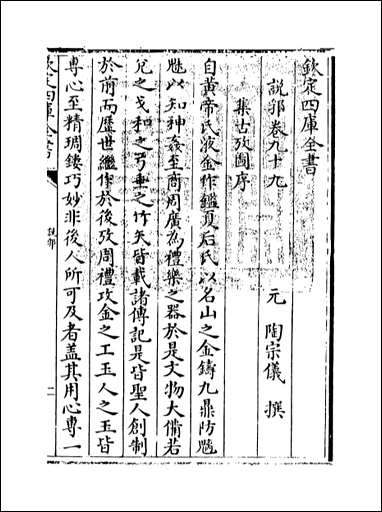 欽定四庫全書
說郛卷九十九
元 陶宗儀 撰
集古攷圖序
自黄帝氏液金作鑑夏后氏以名山之金鑄九鼎防魑
魅以知神姦至商周廣為禮樂之器於是文物大備若
兊之戈和之弓垂之竹矢皆載諸傳記是皆聖人創制
於前而歷世繼作於後攷周禮攻金之工玉人之玉皆
專心至精琱鏤巧妙非後人所可及者盖其用心專一
欽定四庫全書
說郛
二